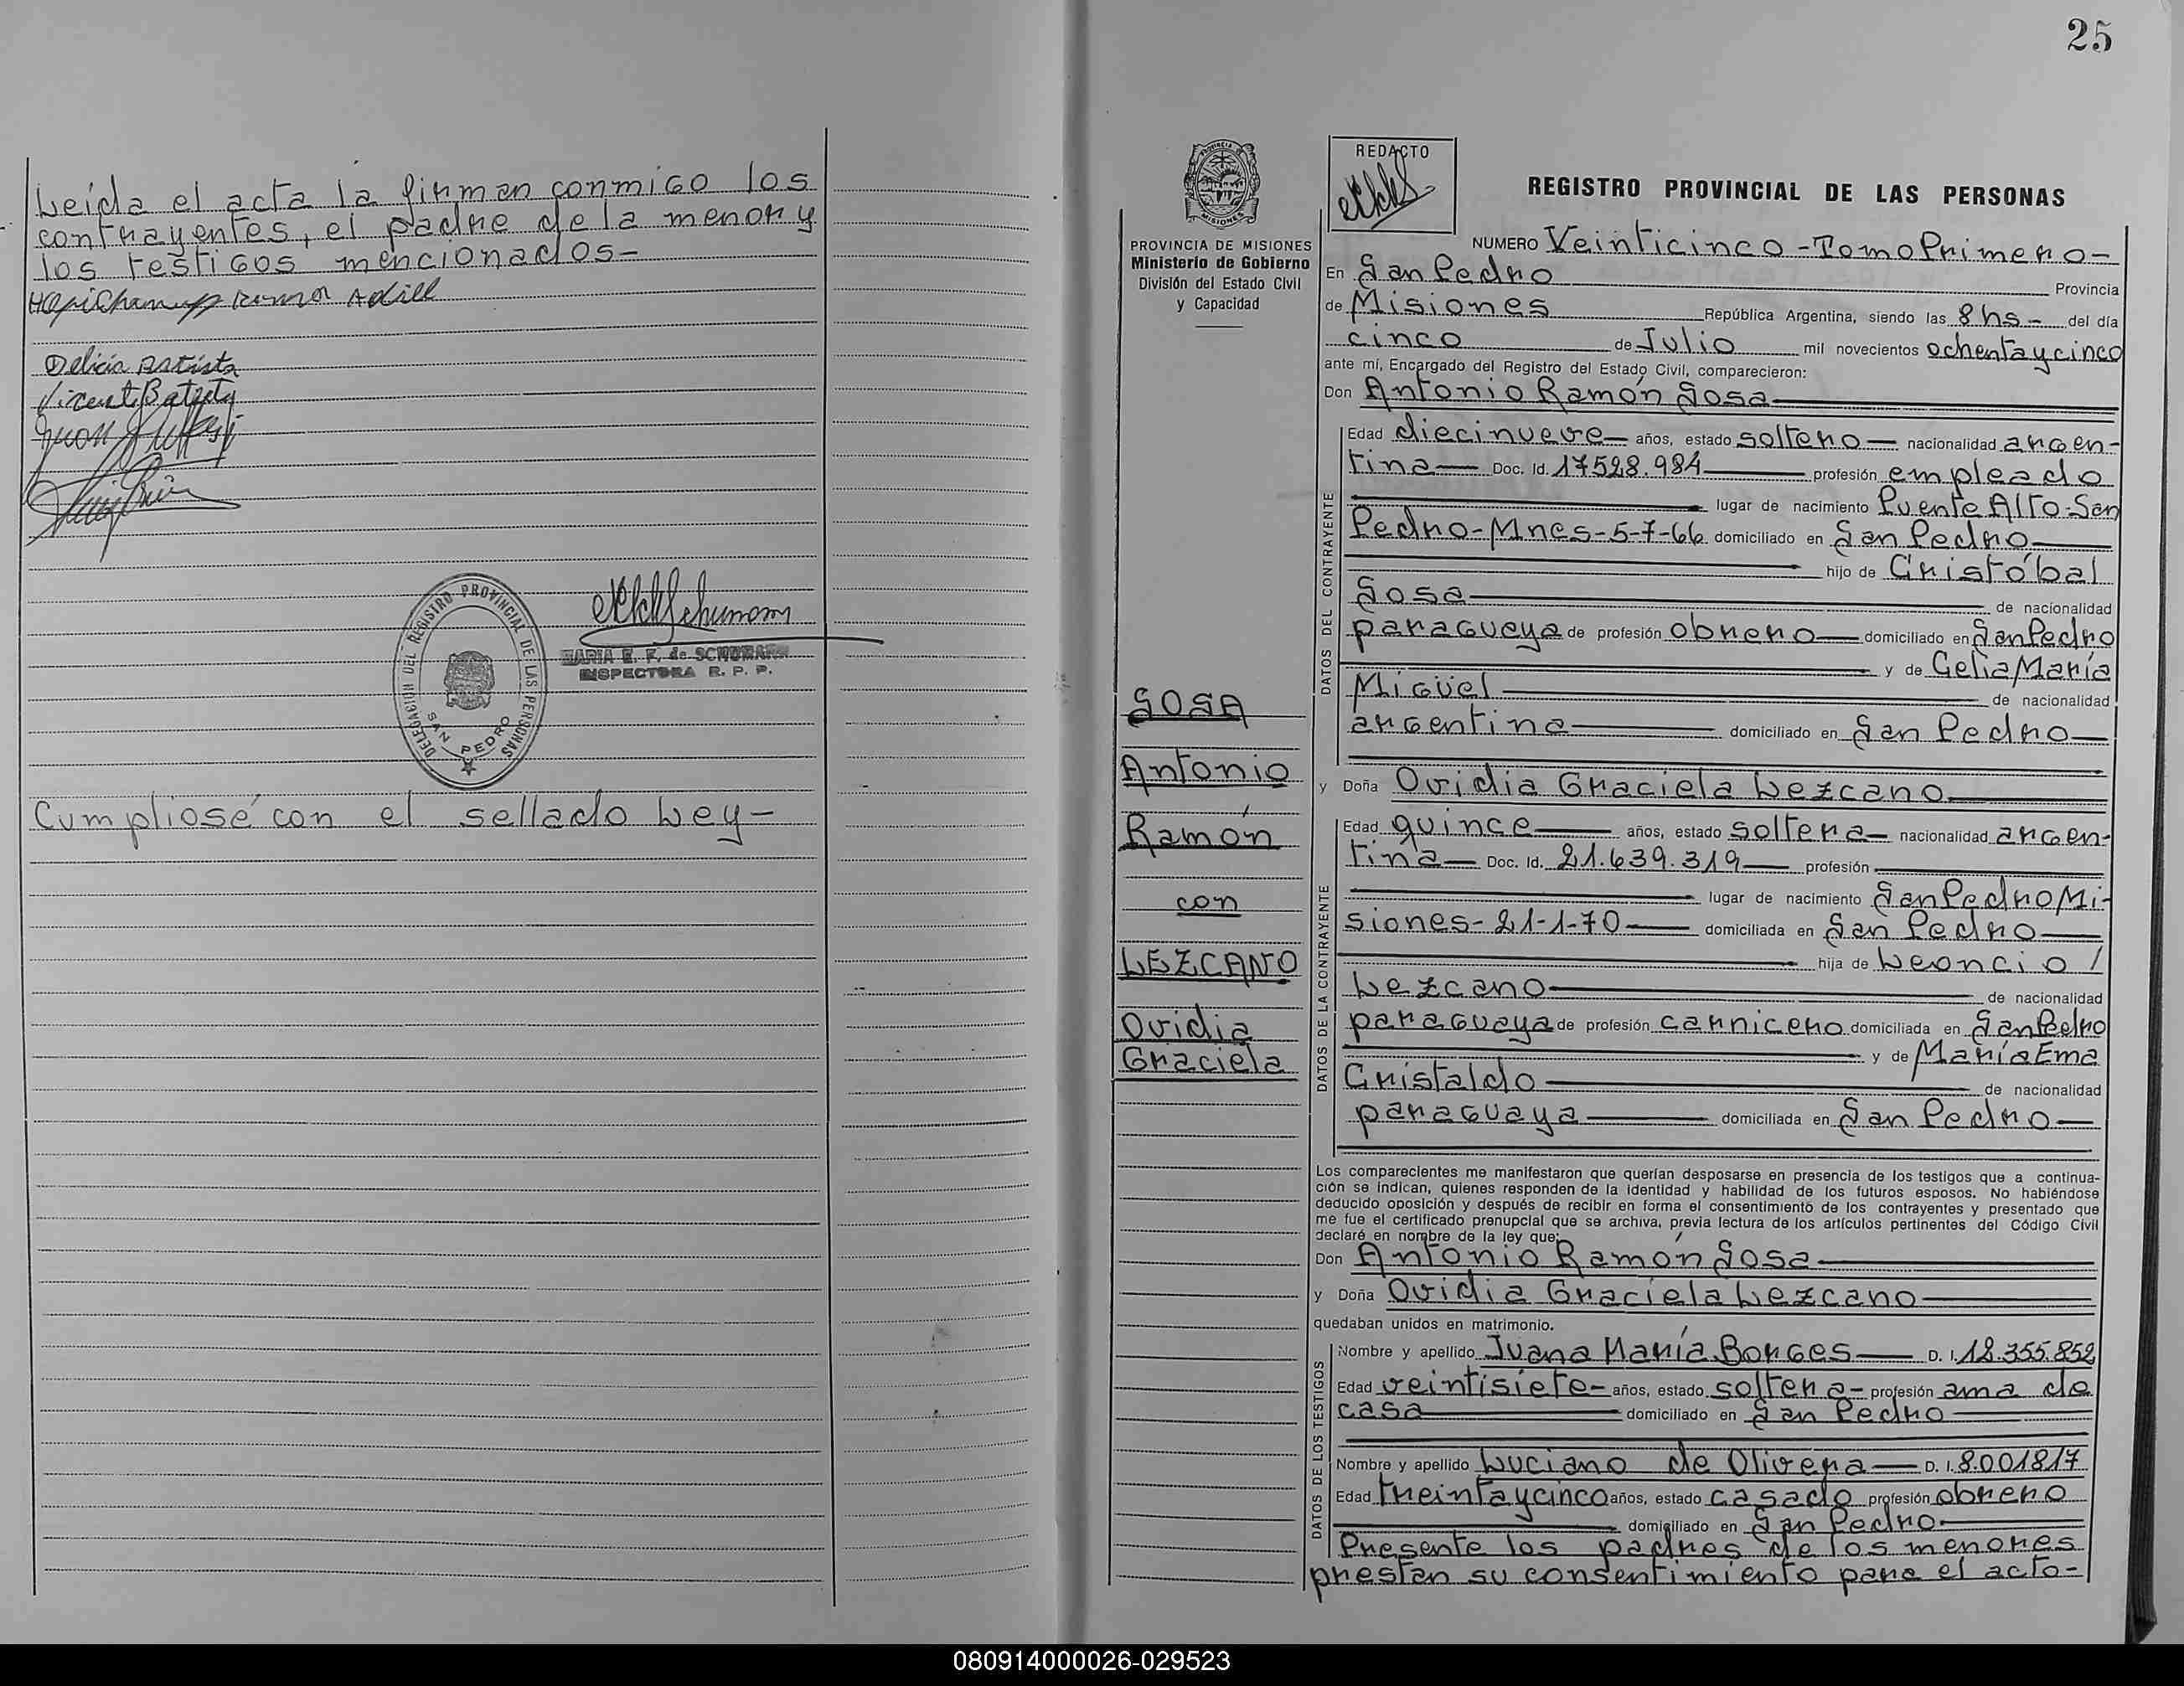 Leída el acta la firman conmigo los
contrayentes, el padre de la menor y
los testigos mencionados-
Ramon
Delicia Batista
Vicente Batista
Juan
DELEGACION DEL REGISTRO PROVINCIAL DE LAS PERSONAS
SAN PEDRO
MARIA E. F. de SCHUMANN
INSPECTORA R. P. P.
Cumpliosé con el sellado Ley-
25
PROVINCIA DE MISIONES
Ministerio de Gobierno
División del Estado Civil
y Capacidad
SOSA
Antonio
Ramón
con
LEZCANO
Ovidia
Graciela
REDACTO
REGISTRO PROVINCIAL DE LAS PERSONAS
NUMERO Veinticinco-Tomo Primero-
En San Pedro Provincia
de Misiones República Argentina, siendo las 8 hs- del día
cinco de Julio mil novecientos ochentaycinco
ante mí, Encargado del Registro del Estado Civil, comparecieron:
Don Antonio Ramón Sosa
DATOS DEL CONTRAYENTE
Edad diecinueve años, estado soltero nacionalidad argen-
tina Doc. Id. 17528.984 profesión empleado
lugar de nacimiento Puente Alto-San
Pedro-Mnes-5-7-66 domiciliado en San Pedro
hijo de Cristóbal
Sosa de nacionalidad
paraguaya de profesión obrero domiciliado en San Pedro
y de Celia María
Migüel de nacionalidad
argentina domiciliado en San Pedro
y Doña Ovidia Graciela Lezcano
DATOS DE LA CONTRAYENTE
Edad quince años, estado soltera nacionalidad argen-
tina Doc. Id. 21.639.319 profesión
lugar de nacimiento San Pedro Mi-
siones-21-1-70 domiciliada en San Pedro
hija de Leoncio /
Lezcano de nacionalidad
paraguaya de profesión carnicero domiciliada en San Pedro
y de María Ema
Cristaldo de nacionalidad
paraguaya domiciliada en San Pedro
Los comparecientes me manifestaron que querían desposarse en presencia de los testigos que a continua-
ción se indican, quienes responden de la identidad y habilidad de los futuros esposos. No habiéndose
deducido oposición y después de recibir en forma el consentimiento de los contrayentes y presentado que
me fue el certificado prenupcial que se archiva, previa lectura de los artículos pertinentes del Código Civil
declaré en nombre de la ley que:
Don Antonio Ramón Sosa
y Doña Ovidia Graciela Lezcano
quedaban unidos en matrimonio.
DATOS DE LOS TESTIGOS
Nombre y apellido Juana María Borges D. I. 12.355.852
Edad veintisiete- años, estado soltera- profesión ama de
casa domiciliado en San Pedro
Nombre y apellido Luciano de Olivera D. I. 8.001817
Edad treintaycinco años, estado casado profesión obrero
domiciliado en San Pedro
Presente los padres de los menores
prestan su consentimiento para el acto-
080914000026-029523